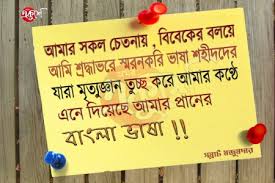 একুশে
আমার সকল চেতনায় , বিবেকের বলয়ে
আমি শ্রদ্ধাভরে স্মরনকরি ভাষা শহীদদের
যারা মৃত্যুজ্ঞান তুচ্ছ করে আমার কণ্ঠে
এনে দিয়েছে আমার প্রানের
বাংলা ভাষা !!
সম্রাট মজুমদার